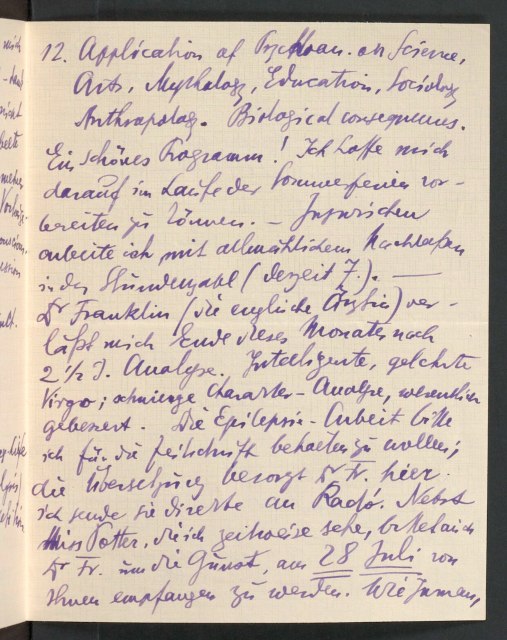 12. Application of Psychoan. on Science,
Arts, Mythology, Education, Sociology
Anthropolog. Biological consequences.
Ein schönes Programm! Ich hoffe mich
darauf im Laufe der Sommerferien vor-
bereiten zu können. — Inzwischen
arbeite ich mit allmählichem Nachlassen
in der Stundenzahl (derzeit 7.). —
Dr Franklin (die englische Ärztin) ver-
läßt mich Ende dieses Monates nach
2 ½ J. Analyse. Intelligente, gelehrte
Virgo; schwierige Charakter-Analyse, wesentlich
gebessert. Die Epilepsie-Arbeit bitte
ich für die Zeitschrift behalten zu wollen;
die Übersetzung besorgt Dr Fr. hier.
Ich sende sie direkte an Radó. Nebst
Miss Potter, die ich zeitweise sehe, bittet auch
Dr Fr. um die Gunst, am 28 Juli von
Ihnen empfangen zu werden. Wie Jemand,
mich
nicht